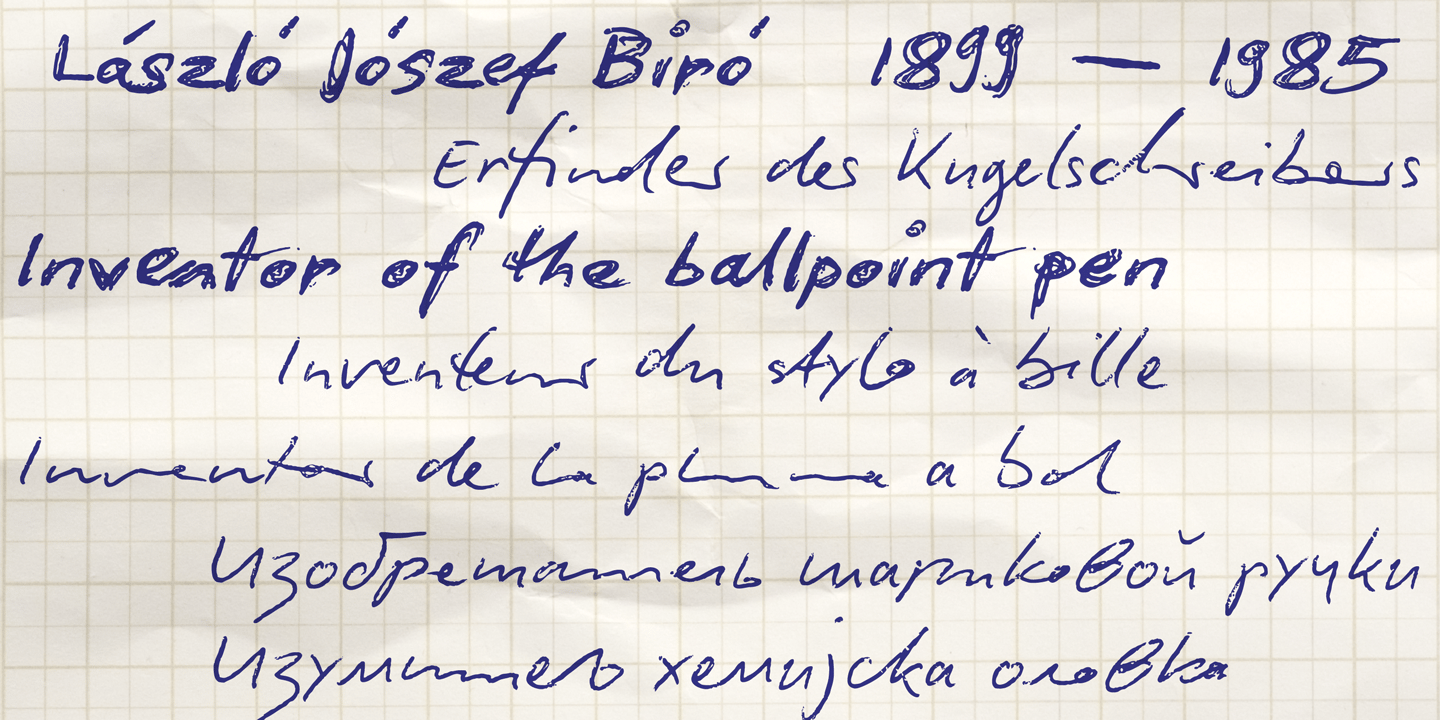 László Jószef Biró 1899 — 1985
Erfinder des Kugelschreibers
Inventor of the ballpoint pen
Inventeur du stylo à bille
Inventor de la pluma a bol
Изобретатель шариковой ручки
Изумитељ хемијска оловка